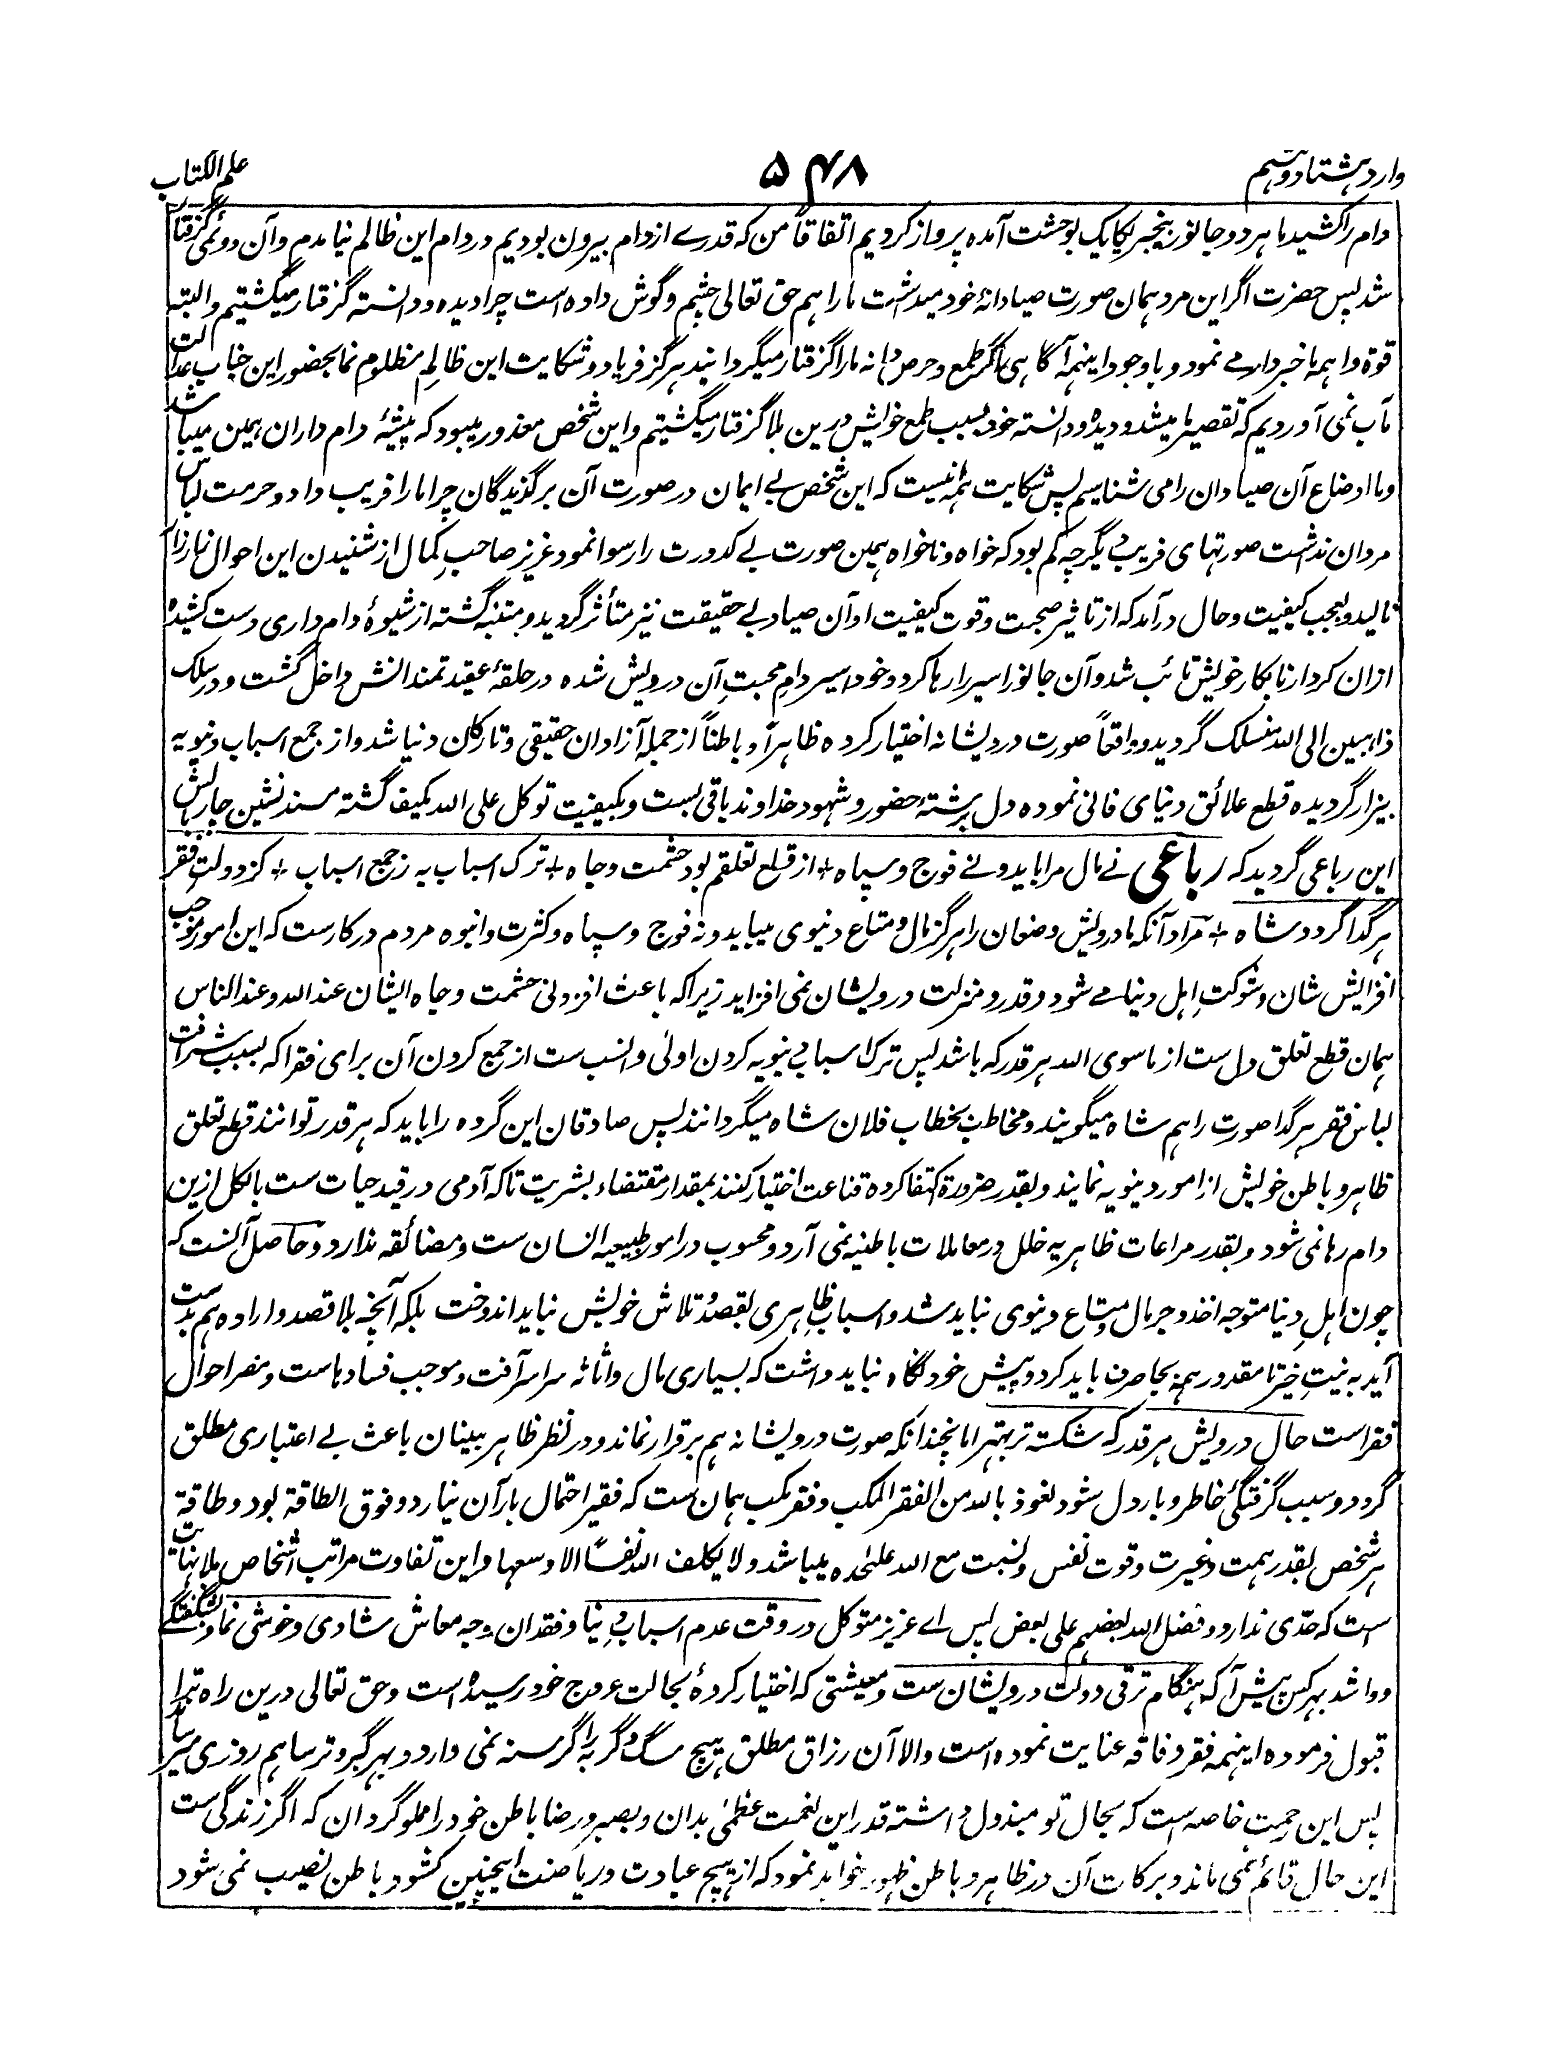 وارد ہشتاد و نہم ۵۴۸ علم الکتاب
دام را کشید ما ہر دو جانور بیخبر یکایک بوحشت آمدہ پرواز کردیم اتفاقاً من کہ قدرے از دام بیرون بودیم در دام این ظالم نیامدم و آن دوئمی گرفتار
شد پس حضرت اگر این مرد ہمان صورت صیادانۂ خود میداشت ما را ہم حق تعالی چشم و گوش دادہ است چرا دیدہ و دانستہ گرفتار میگشتیم و البتہ
قوۃ واہمہ ما خبرداری مے نمود و باوجود اینہمہ آگاہی ما اگر طمع و حرص دانہ ما را گرفتار میگردانید ہرگز فریاد و شکایت این ظالم مظلوم نما بحضور این جناب عدالت
مآب نمی آوردیم کہ تقصیر ما میشد و دیدہ و دانستہ خود بسبب طمع خویش درین بلا گرفتار میگشتیم و این شخص معذور میبود کہ پیشۂ دام داران ہمین میباشد
و ما اوضاع آن صیادان را می شناسیم پس شکایت ہمہ نیست کہ این شخص بے ایمان در صورت آن برگزیدگان چرا ما را فریب داد و حرمت لباس
مردان نداشت صورتہای فریب دیگر چہ کم بود کہ خواہ و ناخواہ ہمین صورت بے کدورت را رسوا نمود عزیز صاحب کمال از شنیدن این احوال زار زار
نالید و بعجب کیفیت و حال درآمد کہ از تاثیر صحبت و قوت کیفیت او آن صیاد بے حقیقت نیز متأثر گردید و متنبہ گشتہ از شیوۂ دام داری دست کشیدہ
ازان کردار نابکار خویش تائب شد و آن جانور اسیر را رہا کرد و خود اسیر دام محبتِ آن درویش شدہ در حلقۂ عقیدتمندانش داخل گشت و در سلک
ذاہبین الی اللہ منسلک گردید و واقعاً صورت درویشانہ اختیار کردہ ظاہراً و باطناً از جملہ آزادان حقیقی و تارکان دنیا شد و از جمع اسباب دنیویہ
بیزار گردیدہ قطع علائق دنیای فانی نمودہ دل برشتۂ حضور و شہود خداوند باقی بست و بکیفیت توکل علی اللہ مکیف گشتہ مسند نشین چار بالش
این رباعی گردید کہ رباعی نے مال مرا باید و نے فوج و سپاہ + از قطع تعلقم بود حشمت و جاہ + ترک اسباب بہ زجمع اسباب + کز دولت فقر
ہر گدا گردد شاہ + مراد آنکہ ما درویش وضعان را ہرگز مال و متاع دنیوی میباید و نہ فوج و سپاہ و کثرت و انبوہ مردم درکارست کہ این امور موجب
افزایش شان و شوکتِ اہل دنیا مے شود و قدر و منزلت درویشان نمی افزاید زیرا کہ باعث افزونی حشمت و جاہ ایشان عند اللہ و عند الناس
ہمان قطع تعلق دل ست از ماسوی اللہ ہر قدر کہ باشد پس ترک اسباب دنیویہ کردن اولی و انسب ست از جمع کردن آن برای فقرا کہ بسبب شرافت
لباس فقر ہر گدا صورت را ہم شاہ میگویند و مخاطب بخطاب فلان شاہ میگردانند پس صادقان این گروہ را باید کہ ہر قدر توانند قطع تعلق
ظاہر و باطن خویش از امور دنیویہ نمایند و بقدر ضرورۃ اکتفا کردہ قناعت اختیار کنند بمقدار مقتضاء بشریت تاکہ آدمی در قید حیات ست بالکل ازین
دام رہا نمی شود و بقدر مراعات ظاہریہ خلل در معاملات باطنیہ نمی آرد و محسوب در امور طبیعیہ انسان ست و مضائقہ ندارد و حاصل آنست کہ
چون اہل دنیا متوجہ اخذ و جر مال و متاع دنیوی نباید شد و اسباب ظاہری بقصد و تلاش خویش نباید اندوخت بلکہ آنچہ بلا قصد و ارادہ ہم بدست
آید بہ نیتِ خیر تا مقدور ہمہ بجا صرف باید کرد و پیش خود نگاہ نباید داشت کہ بسیاری مال و اثاثہ سراسر آفت و موجب فسادہاست و مضر احوال
فقراست حال درویش ہر قدر کہ شکستہ تر بہتر اما بچندانکہ صورت درویشانہ ہم برقرار نماند و در نظر ظاہر بینان باعث بے اعتباری مطلق
گردد و سبب گرفتگئ خاطر و بار دل شود نعوذ باللہ من الفقر المکب و فقر مکب ہمان ست کہ فقیر احتمال بار آن نیارد و فوق الطاقۃ بود و طاقۃ
ہر شخص بقدر ہمت و غیرت و قوت نفس و نسبت مع اللہ علیٰحدہ میباشد و لا یکلف اللہ نفسًا الا وسعہا و این تفاوت مراتب اشخاص بلا نہایت
است کہ حدّی ندارد و فضل اللہ بعضہم علی بعض پس اے عزیز متوکل در وقت عدم اسباب دنیا و فقدان وجہ معاش شادی و خوشی نما و بشگفتگے
و واشد بہر کس پیش آ کہ ہنگام ترقی دولت درویشان ست و معیشتی کہ اختیار کردۂ بحالت عروج خود رسیدہ است و حق تعالی درین راہ ترا
قبول فرمودہ اینہمہ فقر و فاقہ عنایت نمودہ است والا آن رزاق مطلق ہیچ سگ و گربہ را گرسنہ نمی دارد و بہر گبر و ترسا ہم روزی میرساند
پس این رحمت خاصہ است کہ بحال تو مبذول داشتہ قدر این نعمت عظمیٰ بدان و بصبر و رضا باطن خود را مملو گردان کہ اگر زندگی ست
این حال قائم نمی ماند و برکات آن در ظاہر و باطن ظہور خواہد نمود کہ از ہیچ عبادت و ریاضت اینچنین کشود باطن نصیب نمی شود